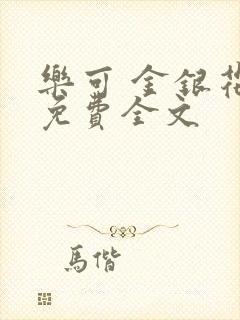 樂可 金銀花
免費全文
馬偕